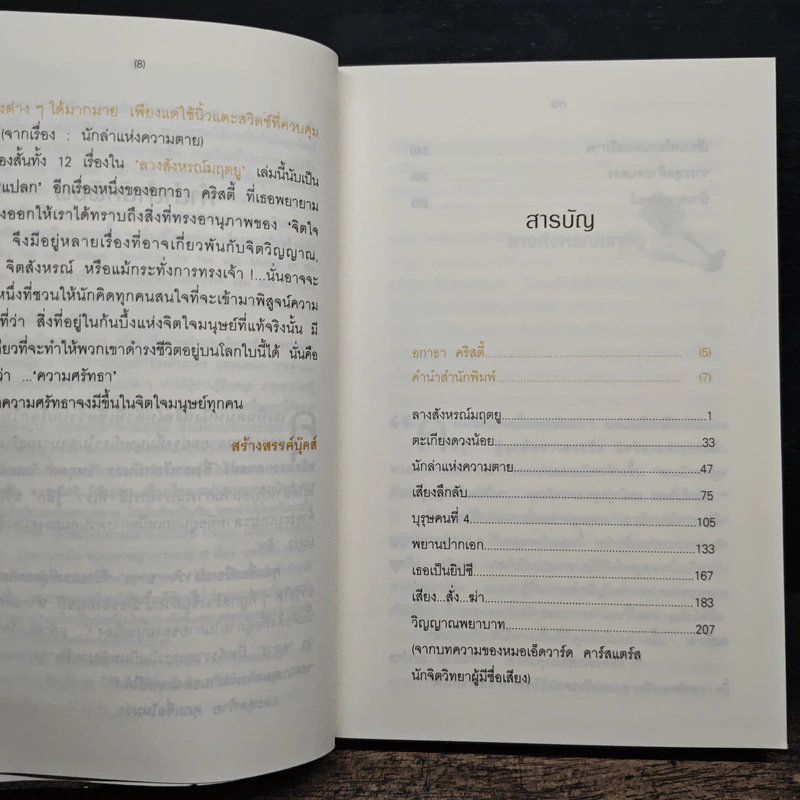 (8)
งต่าง ๆ ได้มากมาย เพียงแต่ใช้นิ้วแตะสวิตช์ที่ควบคุม
(จากเรื่อง : นักล่าแห่งความตาย)
องสั้นทั้ง 12 เรื่องใน ‘ลางสังหรณ์มฤตยู’ เล่มนี้นับเป็น
แปลก’ อีกเรื่องหนึ่งของอกาธา คริสตี้ ที่เธอพยายาม
งออกให้เราได้ทราบถึงสิ่งที่ทรงอานุภาพของ ‘จิตใจ
จึงมีอยู่หลายเรื่องที่อาจเกี่ยวพันกับจิตวิญญาณ,
จิตสังหรณ์ หรือแม้กระทั่งการทรงเจ้า !...นั่นอาจจะ
หนึ่งที่ชวนให้นักคิดทุกคนสนใจที่จะเข้ามาพิสูจน์ความ
ที่ว่า สิ่งที่อยู่ในก้นบึ้งแห่งจิตใจมนุษย์ที่แท้จริงนั้น มี
ียวที่จะทำให้พวกเขาดำรงชีวิตอยู่บนโลกใบนี้ได้ นั่นคือ
ว่า ...‘ความศรัทธา’
ความศรัทธาจงมีขึ้นในจิตใจมนุษย์ทุกคน
สร้างสรรค์บุ๊คส์
สารบัญ
อกาธา คริสตี้ (5)
คำนำสำนักพิมพ์ (7)
ลางสังหรณ์มฤตยู 1
ตะเกียงดวงน้อย 33
นักล่าแห่งความตาย 47
เสียงลึกลับ 75
บุรุษคนที่ 4 105
พยานปากเอก 133
เธอเป็นยิปซี 167
เสียง...สั่ง...ฆ่า 183
วิญญาณพยาบาท 207
(จากบทความของหมอเอ็ดวาร์ด คาร์สแตร์ส
นักจิตวิทยาผู้มีชื่อเสียง)